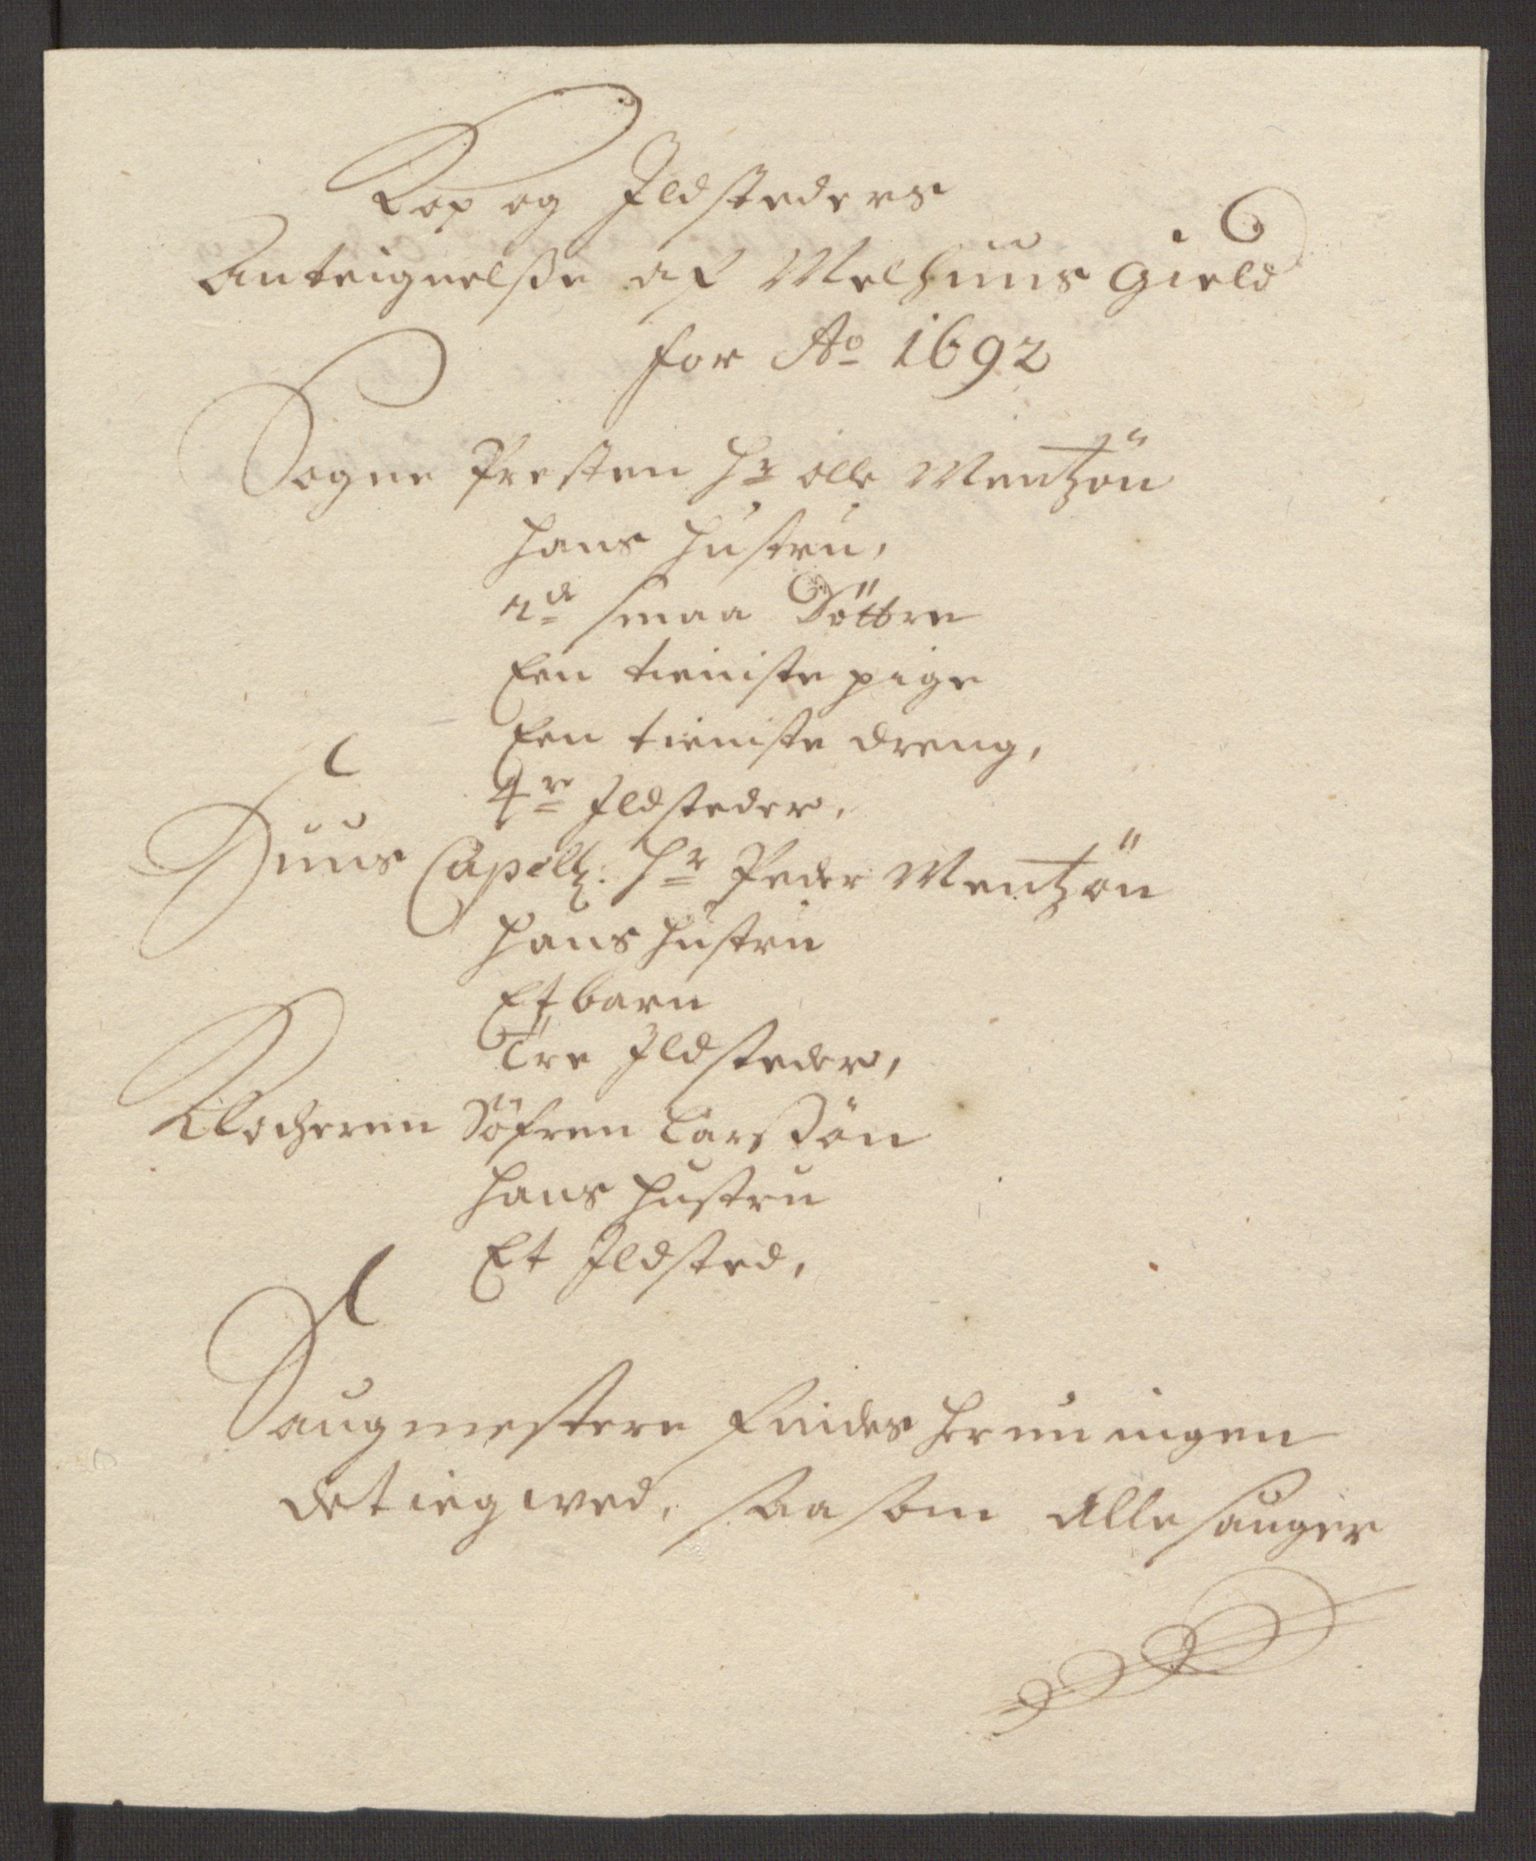 Kop og Ildsteders
Anteignelsse af Melhuus gield
for Ao 1692
Sogne Presten Hr Olle Mentzön
Hans Hustru,
2de smaa Döttre
Een tieniste pige
Een tieniste dreng,
4re Ildsteder,
Huus Capell: Hr Peder Mentzön
Hans Hustru
Et barn
Tre Ildsteder,
Klocheren Söfren Larssön
Hans Hustru
Et Ildsted,
Saugmestere findes her nu ingen
det ieg wed, saasom Alle sauger